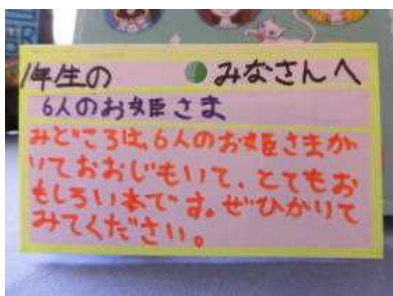 1年生の みなさんへ
6人のお姫さま
みどころは、6人のお姫さまが
いておおじもいて、とてもお
もしろい本です。ぜひかりて
みてください。